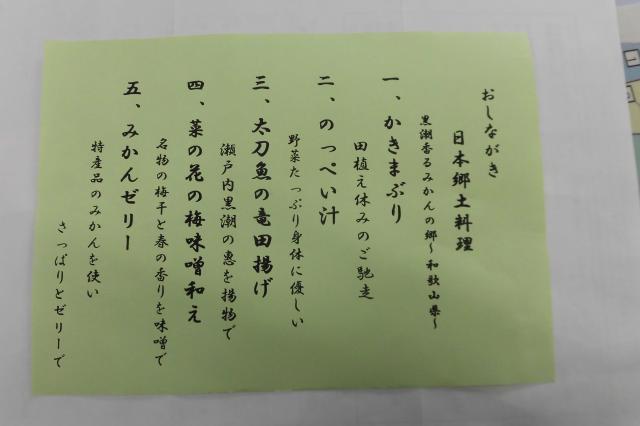 おしながき
日本郷土料理
黒潮香るみかんの郷～和歌山県～
一、かきまぶり
田植え休みのご馳走
二、のっぺい汁
野菜たっぷり身体に優しい
三、太刀魚の竜田揚げ
瀬戸内黒潮の恵を揚物で
四、菜の花の梅味噌和え
名物の梅干と春の香りを味噌で
五、みかんゼリー
特産品のみかんを使い
さっぱりとゼリーで